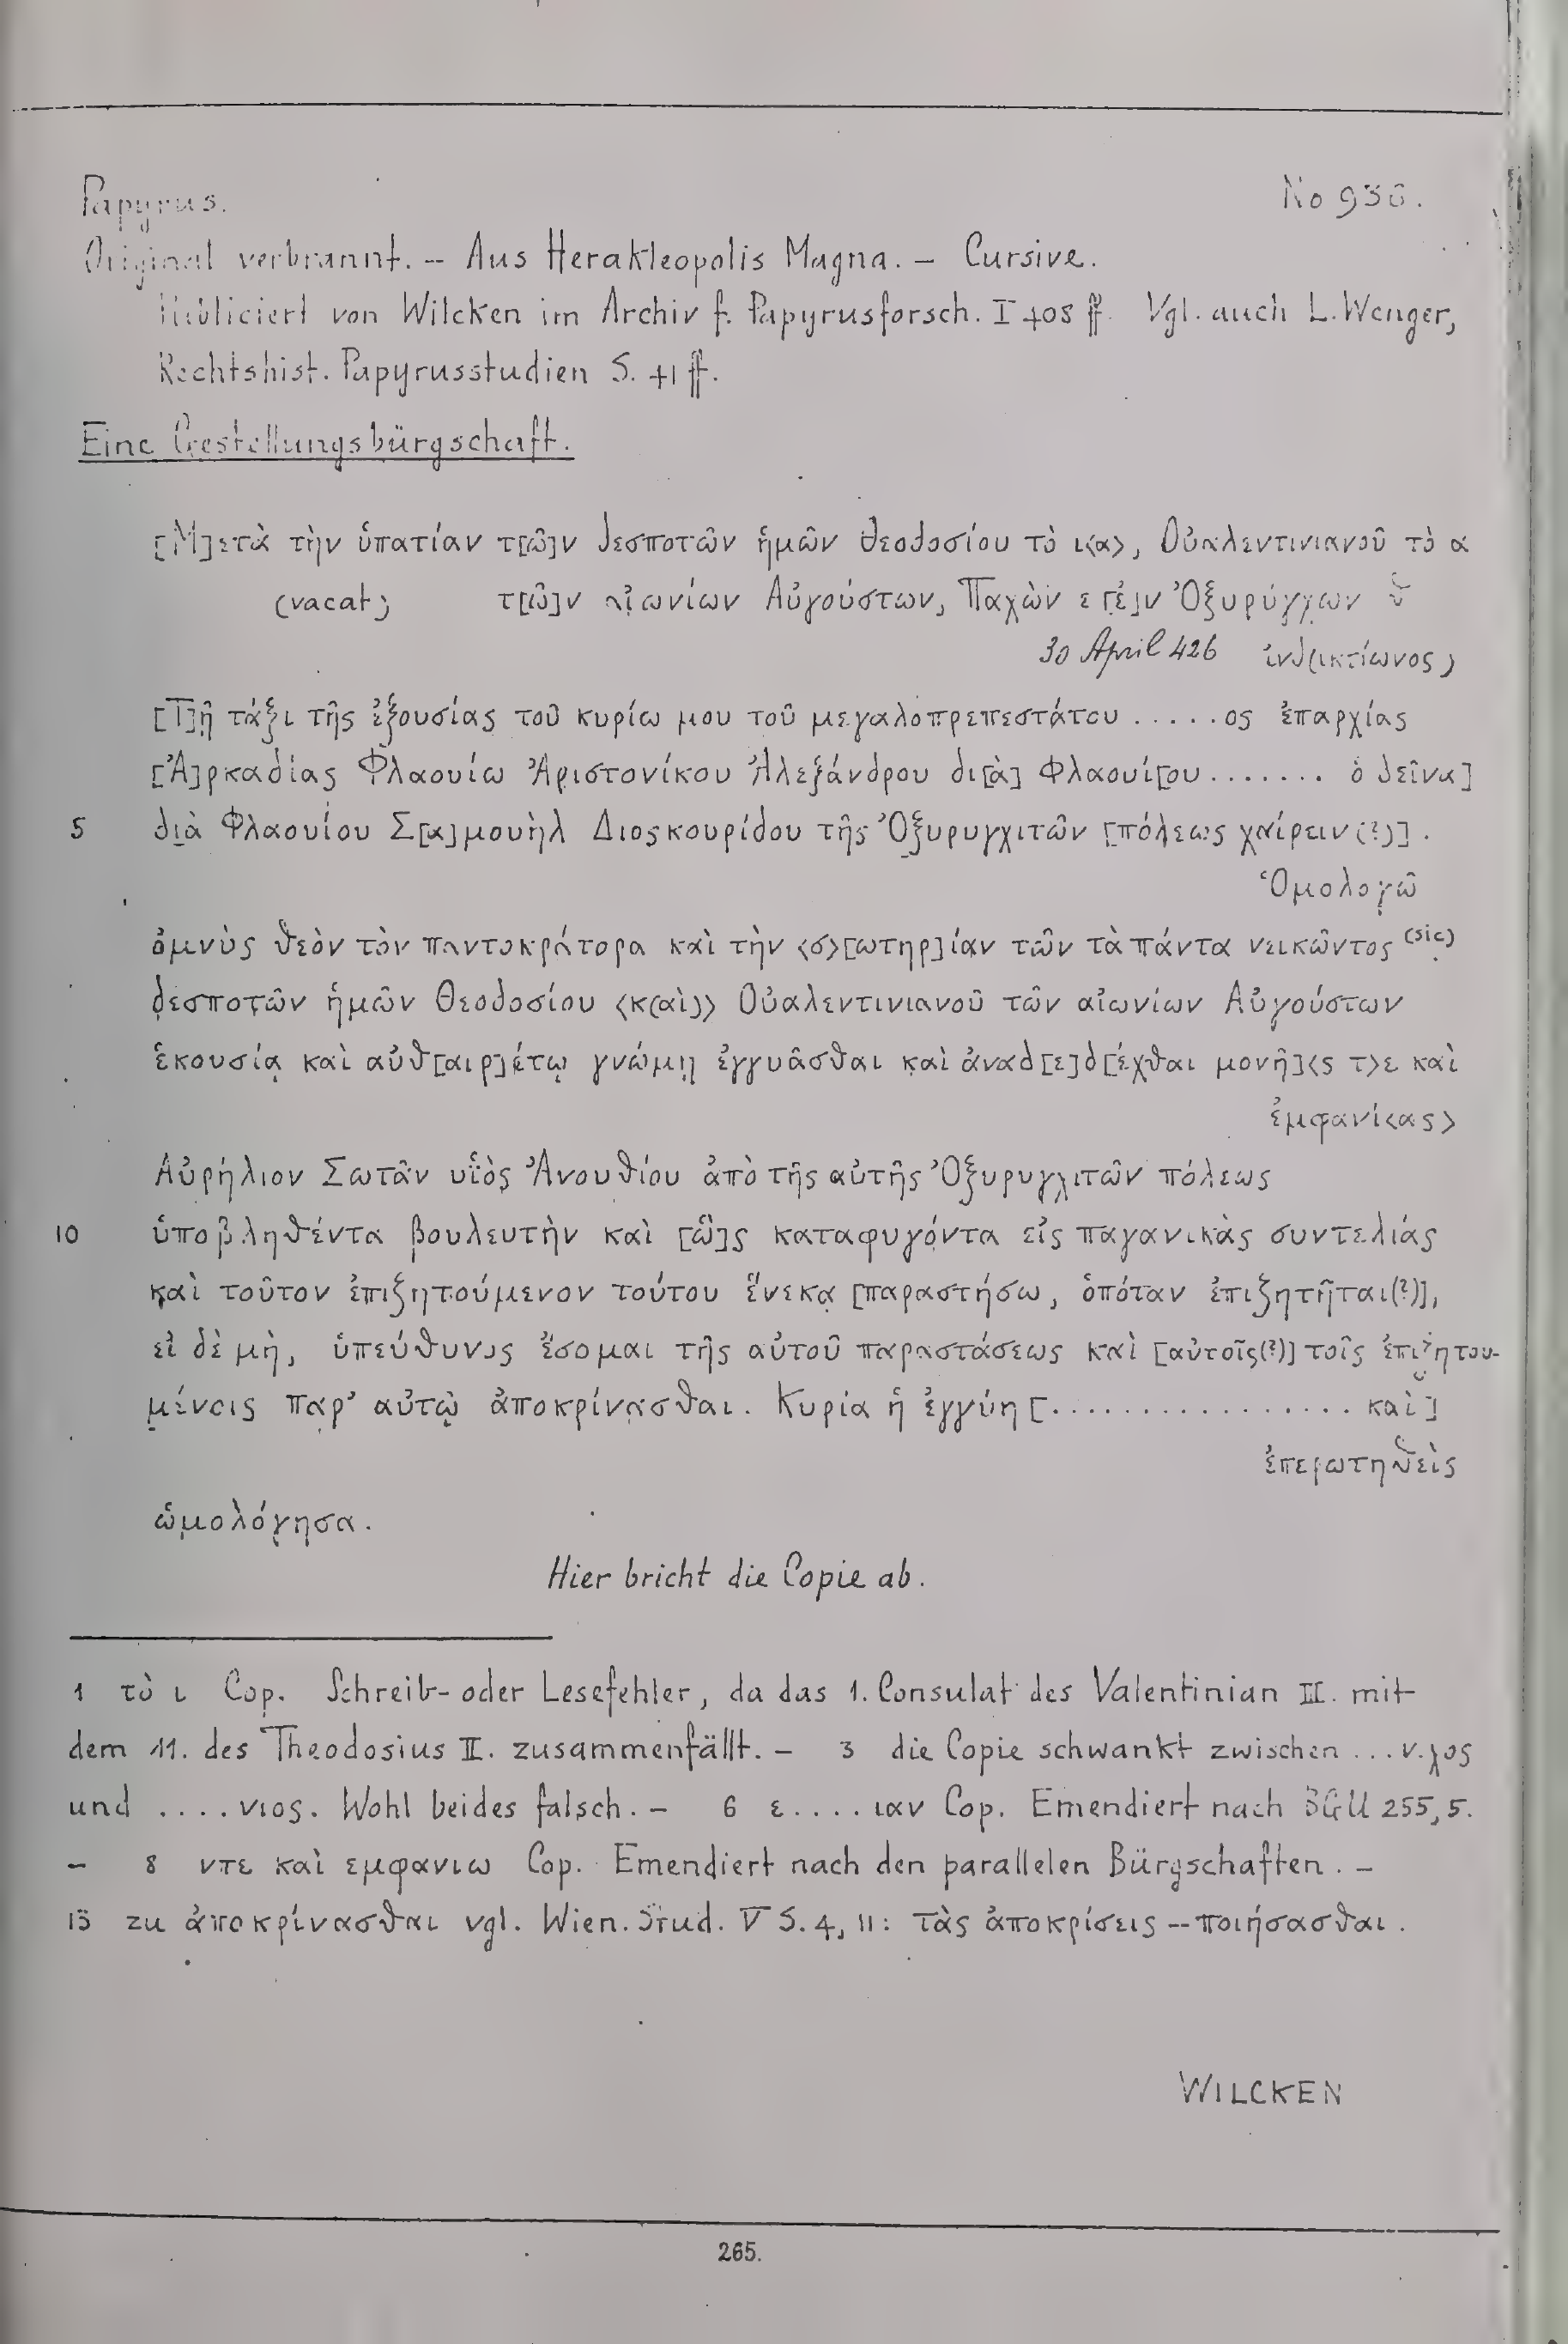 Papyrus. No 936.
Original verbrannt. – Aus Herakleopolis Magna. – Cursive.
Publiciert von Wilcken im Archiv f. Papyrusforsch. I 408 ff. Vgl. auch L. Wenger,
Rechtshist. Papyrusstudien S. 41 ff.
Eine Gestellungsbürgschaft.
[Μ]ετὰ τὴν ὑπατίαν τ[ῶ]ν δεσποτῶν ἡμῶν Θεοδοσίου τὸ ι<α>, Οὐαλεντινιανοῦ τὸ α
(vacat) τ[ῶ]ν αἰωνίων Αὐγούστων, Παχὼν ε [ἐ]ν Ὀξυρύγχων
30 April 426 ἰνδ(ικτίωνος)
[Τ]ῇ τάξι τῆς ἐξουσίας τοῦ κυρίω μου τοῦ μεγαλοπρεπεστάτου .....ος ἐπαρχίας
[Ἀ]ρκαδίας Φλαουίω Ἀριστονίκου Ἀλεξάνδρου δι[ὰ] Φλαουί[ου....... ὁ δεῖνα]
5 διὰ Φλαουίου Σ[α]μουὴλ Διοςκουρίδου τῆς Ὀξυρυγχιτῶν [πόλεως χαίρειν(?)].
Ὁμολογῶ
ὀμνὺς θεὸν τὸν παντοκράτορα καὶ τὴν <σ>[ωτηρ]ίαν τῶν τὰ πάντα νεικῶντος (sic)
δεσποτῶν ἡμῶν Θεοδοσίου <κ(αὶ)> Οὐαλεντινιανοῦ τῶν αἰωνίων Αὐγούστων
ἑκουσίᾳ καὶ αὐθ[αιρ]έτῳ γνώμῃ ἐγγυᾶσθαι καὶ ἀναδ[ε]δ[έχθαι μονῆ]<ς τ>ε καὶ
ἐμφανί<ας>
Αὐρήλιον Σωτᾶν υἱὸς Ἀνουθίου ἀπὸ τῆς αὐτῆς Ὀξυρυγχιτῶν πόλεως
10 ὑποβληθέντα βουλευτὴν καὶ [ὣ]ς καταφυγόντα εἰς παγανικὰς συντελιάς
καὶ τοῦτον ἐπιζητούμενον τούτου ἕνεκα [παραστήσω, ὁπόταν ἐπιζητῆται(?)],
εἰ δὲ μὴ, ὑπεύθυνος ἔσομαι τῆς αὐτοῦ παραστάσεως καὶ [αὐτοῖς(?)] τοῖς ἐπιζητου-
μένοις παρ' αὐτῷ ἀποκρίνασθαι. Κυρία ἡ ἐγγύη [................. καὶ]
ἐπερωτηθεὶς
ὡμολόγησα.
Hier bricht die Copie ab.
1 τὸ ι Cop. Schreib- oder Lesefehler, da das 1. Consulat des Valentinian III. mit
dem 11. des Theodosius II. zusammenfällt. – 3 die Copie schwankt zwischen ...ν.χος
und ....νιος. Wohl beides falsch. – 6 ε....ιαν Cop. Emendiert nach BGU 255, 5.
– 8 ντε καὶ εμφανιω Cop. Emendiert nach den parallelen Bürgschaften. –
13 zu ἀποκρίνασθαι vgl. Wien. Stud. V S. 4, 11: τὰς ἀποκρίσεις -- ποιήσασθαι.
WILCKEN
265.